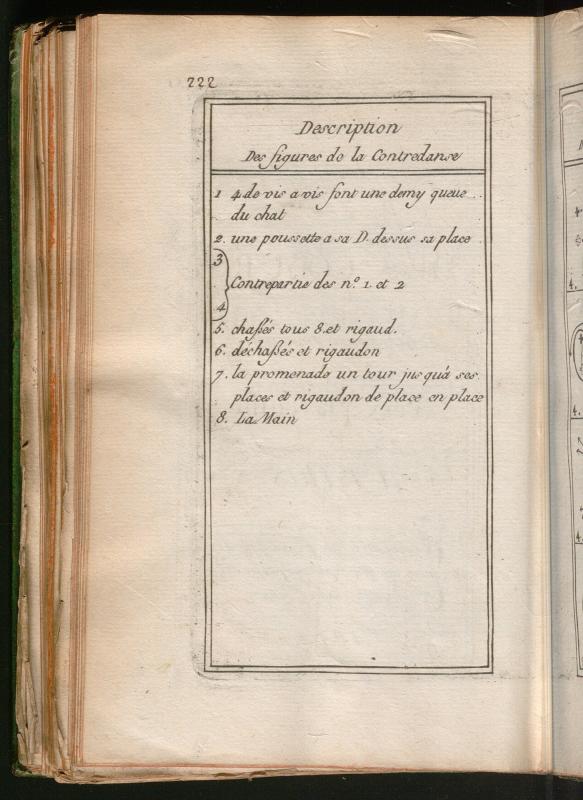 222
Description
Des figures de la Contredanse
1 4 de vis a vis font une demy queue
du chat
2. une poussette a sa D. dessus sa place
3
Contrepartie des n.º 1. et 2
4
5. chaßés tous 8. et rigaud.
6. déchaßés et rigaudon
7. la promenade un tour jusquà ses
places et rigaudon de place en place
8. La Main